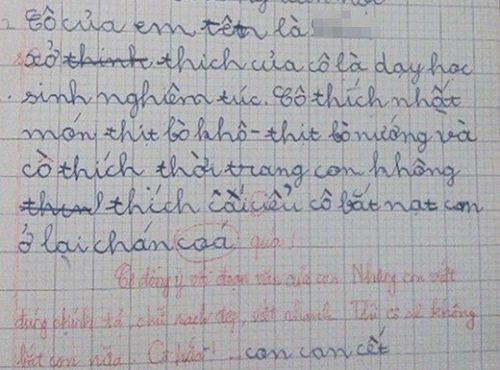 Cô của em tên là
sở thinh thich của cô là dạy học
sinh nghiêm túc. Cô thích nhất
món thịt bò khô - thịt bò nướng và
cô thích thời trang con không
thích cái kiểu cô bắt nạt con
ở lại chán coá quá!
Cô đồng ý với đoạn văn của con Nhưng con viết
đúng chính tả, chữ sạch đẹp, viết nhanh Thì cô sẽ không
bắt con nữa. Cô hứa!
con can cết